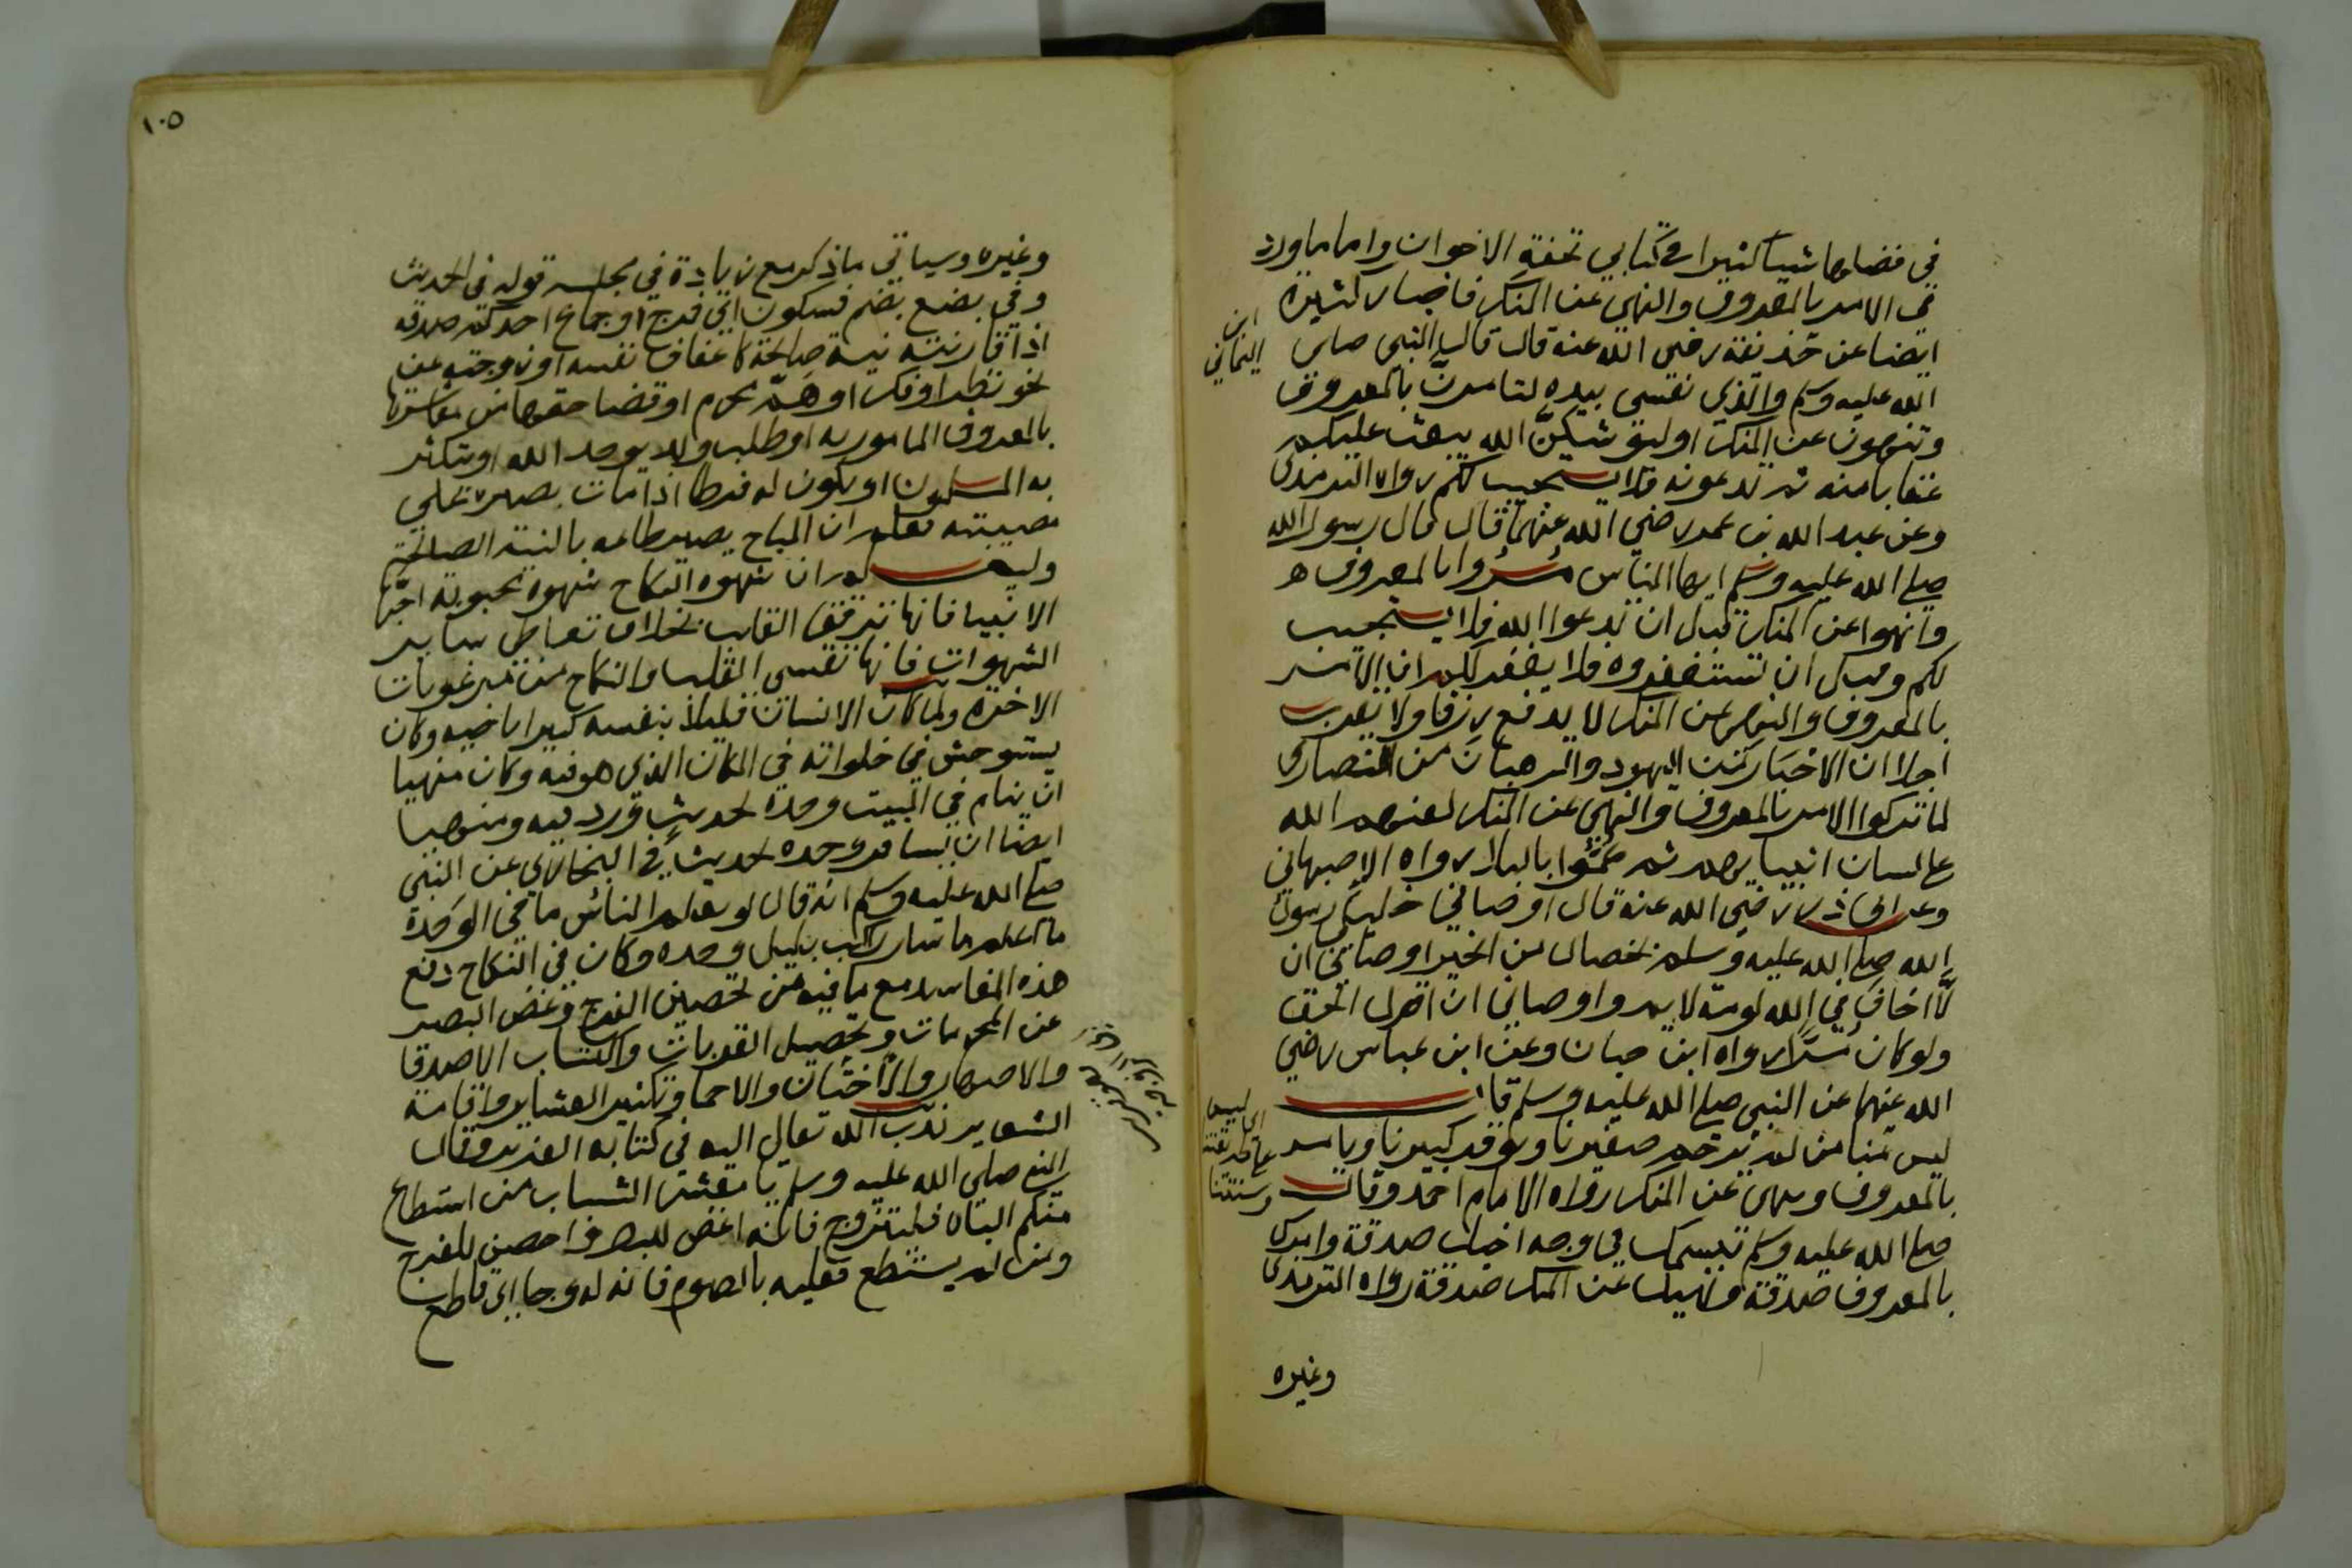 في فضلها شيئا كثيرا في كتابي تحفة الاخوان واما ماورد
في الامر بالمعروف والنهي عن المنكر فاخبار كثيرة
ايضا عن حذيفة رضي الله عنه قال قال النبي صلى
الله عليه وسلم والذي نفسي بيده لتامرن بالمعروف
وتنهون عن المنكر او ليوشكن الله يبعث عليكم
عقابا منه ثم تدعونه فلا يستجيب لكم رواه الترمذي
وعن عبد الله بن عمر رضي الله عنهما قال قال رسول الله
صلى الله عليه وسلم ايها الناس مروا بالمعروف
وانهوا عن المنكر قبل ان تدعوا الله فلا يستجيب
لكم وقبل ان تستغفروه فلا يغفر لكم ان الامر
بالمعروف والنهي عن المنكر لا يدفع رزقا ولا يقرب
اجلا ان الاحبار من اليهود والرهبان من النصارى
لما تركوا الامر بالمعروف والنهي عن المنكر لعنهم الله
على لسان انبيايهم ثم عموا بالبلا رواه الاصبهاني
وعن ابي ذر رضي الله عنه قال اوصاني خليلي رسول
الله صلى الله عليه وسلم بخصال من الخير اوصاني ان
لا اخاف في الله لومة لايم واوصاني ان اقول الحق
ولو كان مرا رواه ابن حبان وعن ابن عباس رضي
الله عنهما عن النبي صلى الله عليه وسلم قال
ليس منا من لم يرحم صغيرنا ويوقر كبيرنا ويامر
بالمعروف وينهى عن المنكر رواه الامام احمد وقال
صلى الله عليه وسلم تبسمك في وجه اخيك صدقة وامرك
بالمعروف صدقة ونهيك عن المنكر صدقة رواه الترمذي
وغيره
ابن
اليماني
اي ليس
على طريقتنا
وسنتنا
١٠٥
وغيره وسياتي ماذكر مع زيادة في محله قوله في الحديث
وفي بضع بضم فسكون اي فرج او جماع احدكم صدقة
اذا قارنته نية صالحة كاعفاف نفسه او زوجته عن
نحو نظر او فكر او هم محرم او قضا حقها من معاشرتها
بالمعروف المامور به او طلب ولد يوحد الله او يتكثر
به المسلمون او يكون له فرطا اذا مات بصبره على
مصيبته فعلم ان المباح يصير طاعه بالنية الصالحة
وليعلم ان شهوه النكاح شهوه محبوبة احبها
الانبيا فانها ترقق القلب بخلاف تعاطي ساير
الشهوات فانها تقسي القلب والنكاح من مرغوبات
الاخرة ولما كان الانسان قليلا بنفسه كثيرا باخيه وكان
يستوحش في خلواته في المكان الذي هو فيه وكان منهيا
ان ينام في البيت وحده لحديث ورد فيه ومنهيا
ايضا ان يسافر وحده لحديث في البخاري عن النبي
صلى الله عليه وسلم انه قال لو يعلم الناس ما في الوحدة
ما اعلم ما سار راكب بليل وحده وكان في النكاح دفع
هذه المفاسد مع ما فيه من تحصين الفرج وغض البصر
عن المحرمات وتحصيل القربات واكتساب الاصدقا
والاصهار والاختان والاحما وتكثير العشاير واقامة
الشعاير ندب الله تعالى اليه في كتابه العزيز وقال
النبي صلى الله عليه وسلم يا معشر الشباب من استطاع
منكم الباه فليتزوج فانه اغض للبصر واحصن للفرج
ومن لم يستطع فعليه بالصوم فانه له وجا اي قاطع